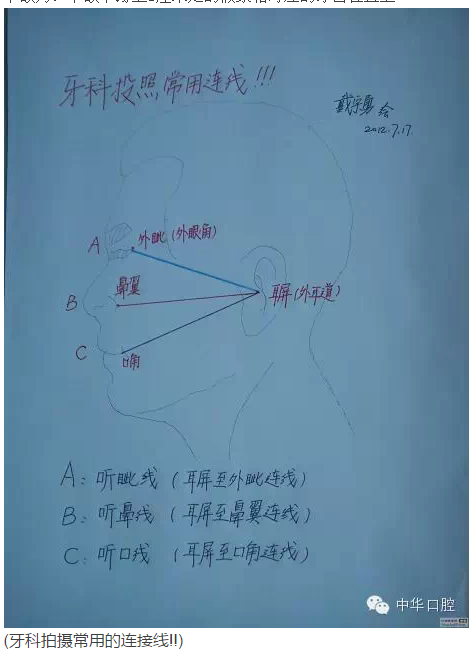 牙科投照常用连线!!!
戴宇勇 绘
2012.7.17.
A 外眦(外眼角)
鼻翼
B
耳屏(外耳道)
C
口角
A:听眦线(耳屏至外眦连线)
B:听鼻线(耳屏至鼻翼连线)
C:听口线(耳屏至口角连线)
中华口腔
(牙科拍摄常用的连接线!!)